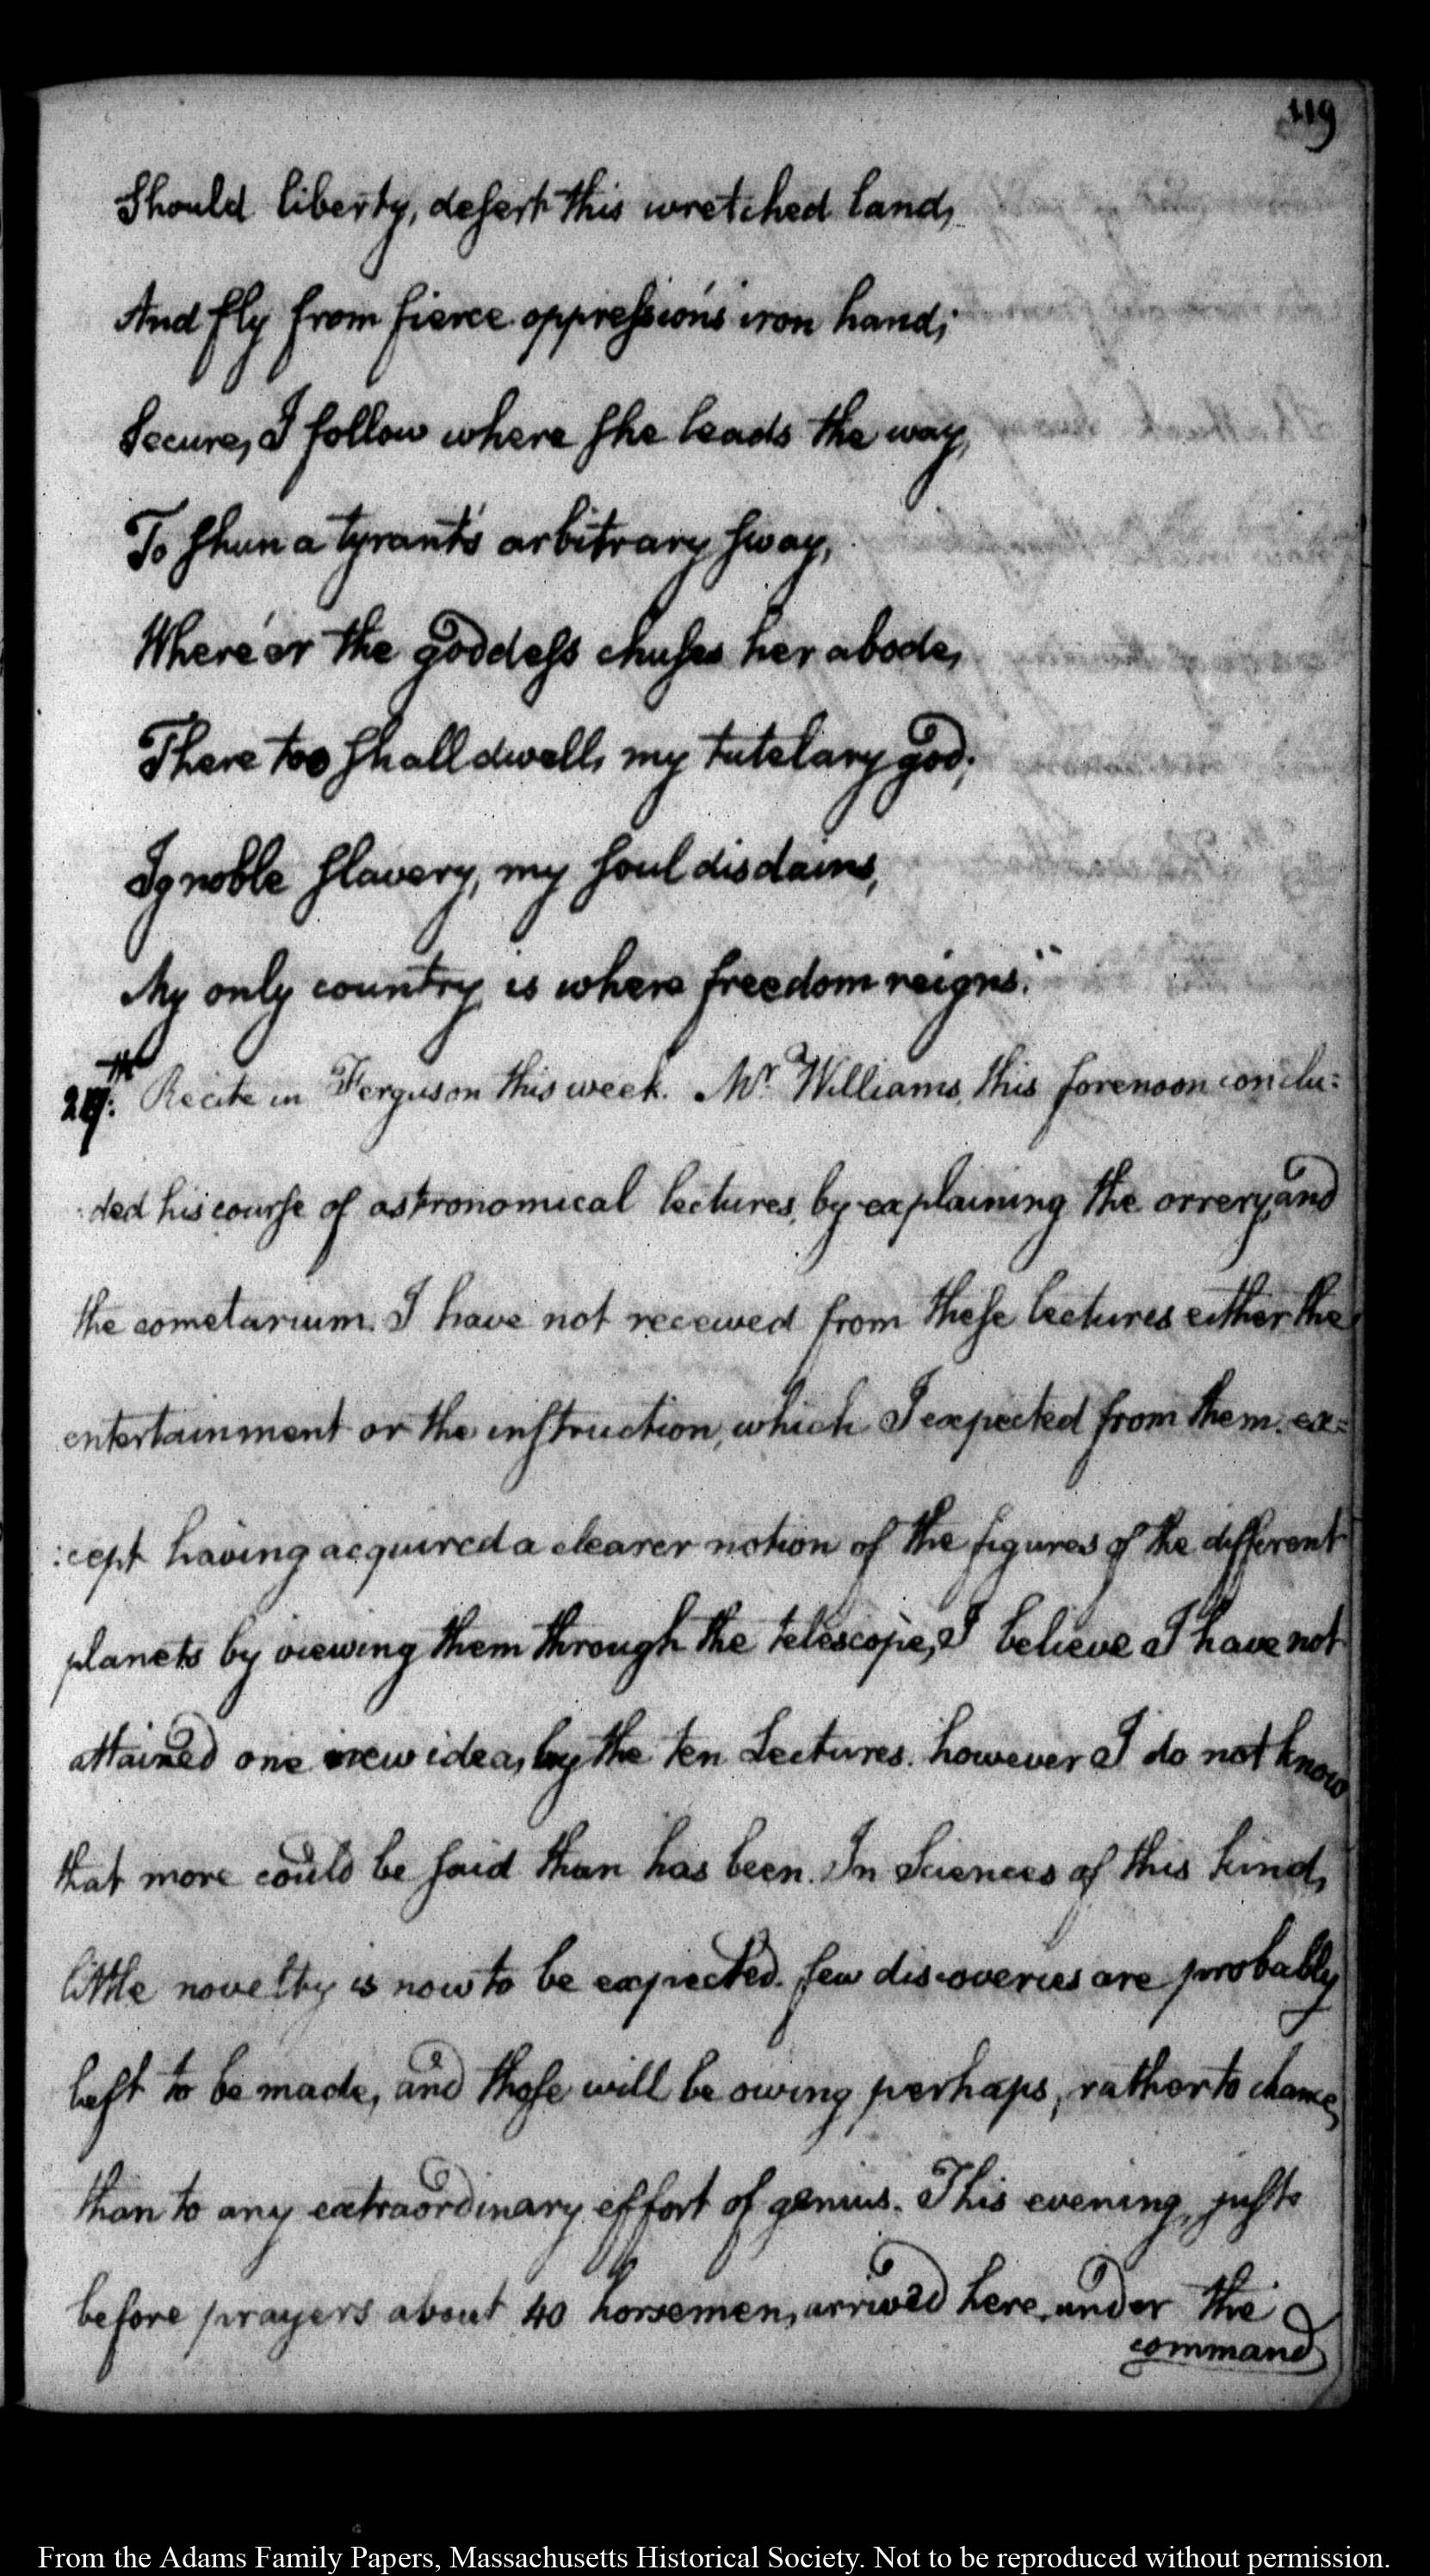 119
Should liberty, desert this wretched land,
And fly from fierce oppression's iron hand;
Secure, I follow where she leads the way,
To shun a tyrant's arbitrary sway,
Where'er the goddess chuses her abode,
There too shall dwell, my tutelary god;
Ignoble slavery, my soul disdains,
My only country is where freedom reigns."
Recite in Ferguson this week. Mr. Williams, this forenoon conclu:
:ded his course of astronomical lectures, by explaining the orrery, and
the cometarium. I have not received from these lectures either the
entertainment or the instruction, which I expected from them. ex:
:cept having acquired a clearer notion of the figures of the different
planets by viewing them through the telescope, I believe I have not
attained one new idea, by the ten Lectures. however I do not know
that more could be said than has been. In Sciences of this kind,
little novelty is now to be expected. few discoveries are probably
left to be made, and those will be owing perhaps, rather to chance,
than to any extraordinary effort of genius. This evening, just
before prayers about 40 horsemen, arrived here, under the
command
From the Adams Family Papers, Massachusetts Historical Society. Not to be reproduced without permission.